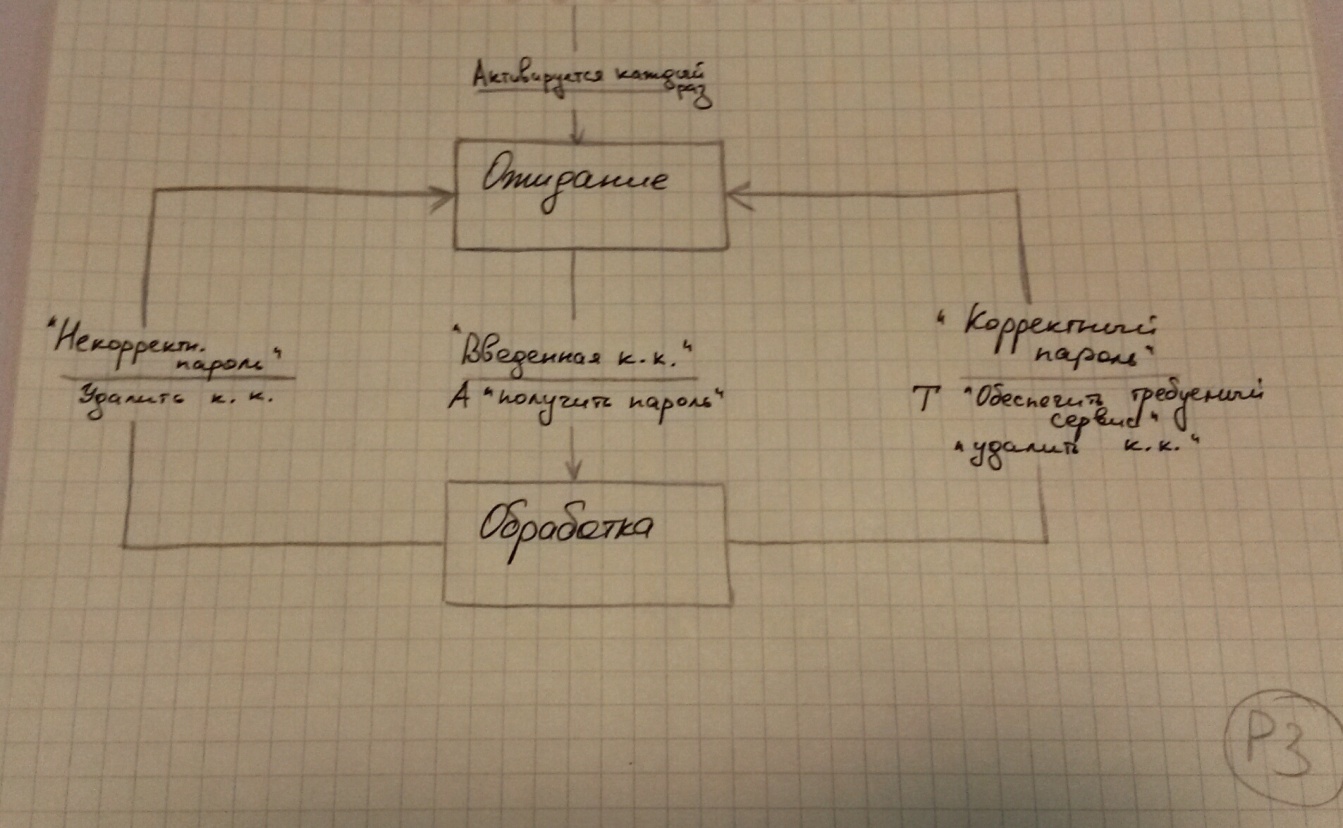 Активируется каждый
раз
Ожидание
"Некорректн.
пароль"
Удалить к. к.
"Введенная к.к."
А "получить пароль"
"Корректный
пароль"
Т "Обеспечить требуемый
сервис"
"удалить к.к."
Обработка
Р3